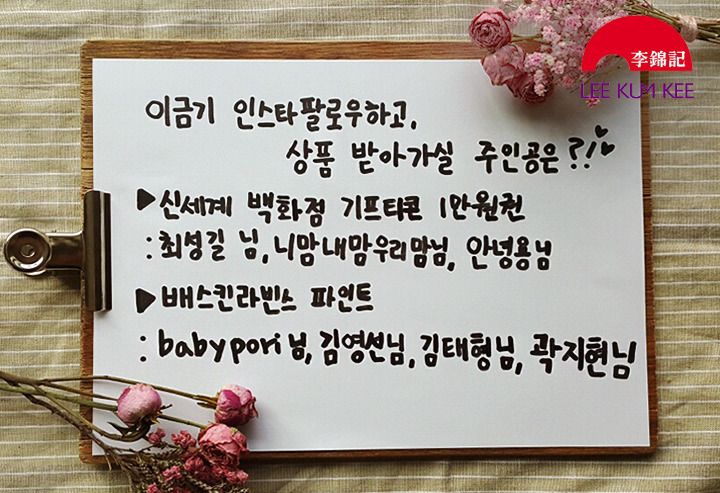 李錦記
LEE KUM KEE
이금기 인스타팔로우하고,
상품 받아가실 주인공은?!
▶신세계 백화점 기프티콘 1만원권
:최성길 님, 니맘내맘우리맘님, 안녕용님
▶배스킨라빈스 파인트
:babypori님, 김영선님, 김태형님, 곽지현님